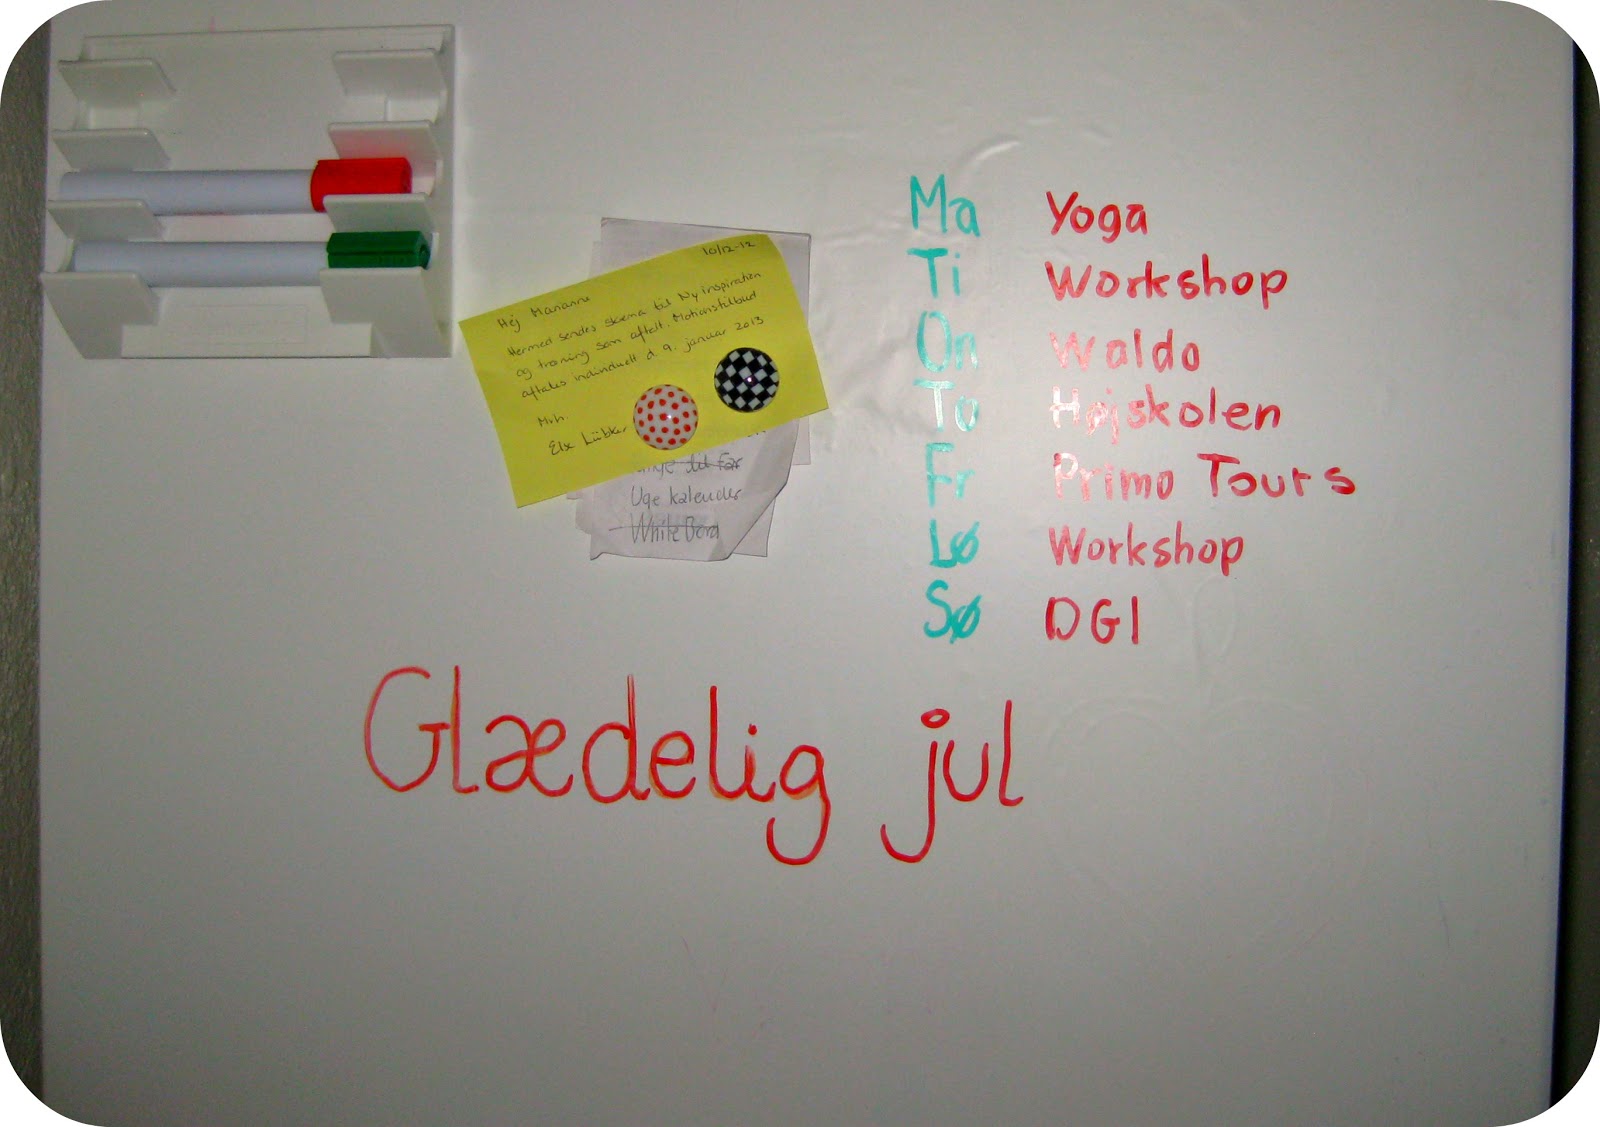 10/12-12
Hej Marianne
Hermed sendes skema til Ny inspiration
og træning som aftalt. Motionstilbud
aftales individuelt d. 9. januar 2013
Mvh.
Else Lübker
Uge kalender
White Bord
Ma Yoga
Ti Workshop
On Waldo
To Højskolen
Fr Primo Tours
Lø Workshop
Sø DGI
Glædelig jul